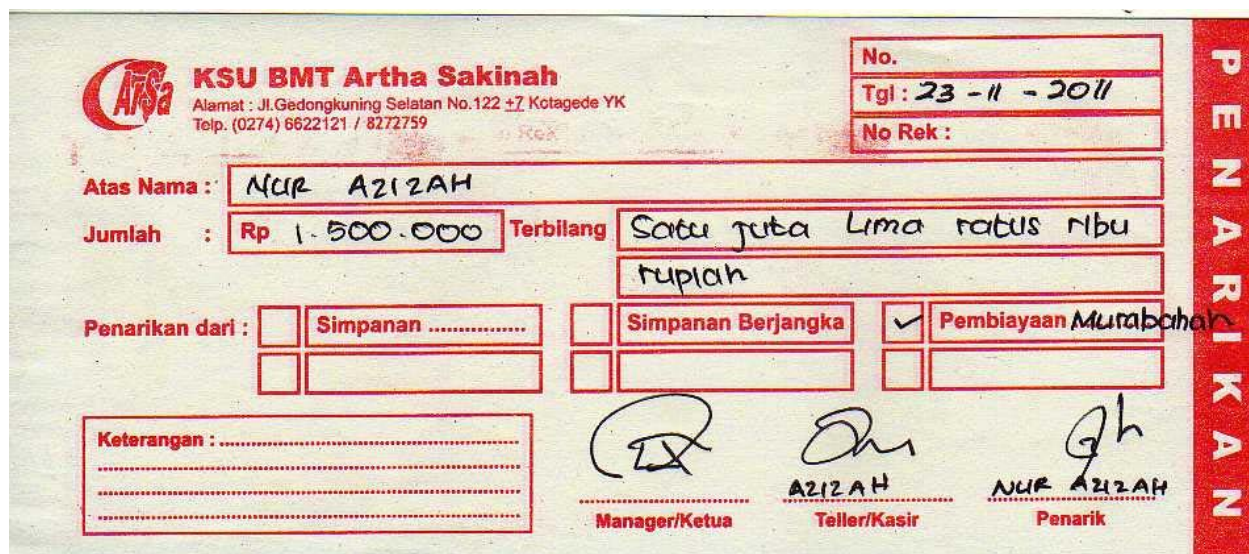 Artsa
KSU BMT Artha Sakinah
Alamat : Jl.Gedongkuning Selatan No.122 +7 Kotagede YK
Telp. (0274) 6622121 / 8272759
No.
Tgl : 23 - 11 - 2011
No Rek :
Atas Nama : NUR AZIZAH
Jumlah : Rp 1.500.000 Terbilang Satu juta Lima ratus ribu
rupiah
Penarikan dari : Simpanan ................ Simpanan Berjangka ✓ Pembiayaan Murabahah
Keterangan : ......................................................
AZIZAH NUR AZIZAH
Manager/Ketua Teller/Kasir Penarik
PENARIKAN